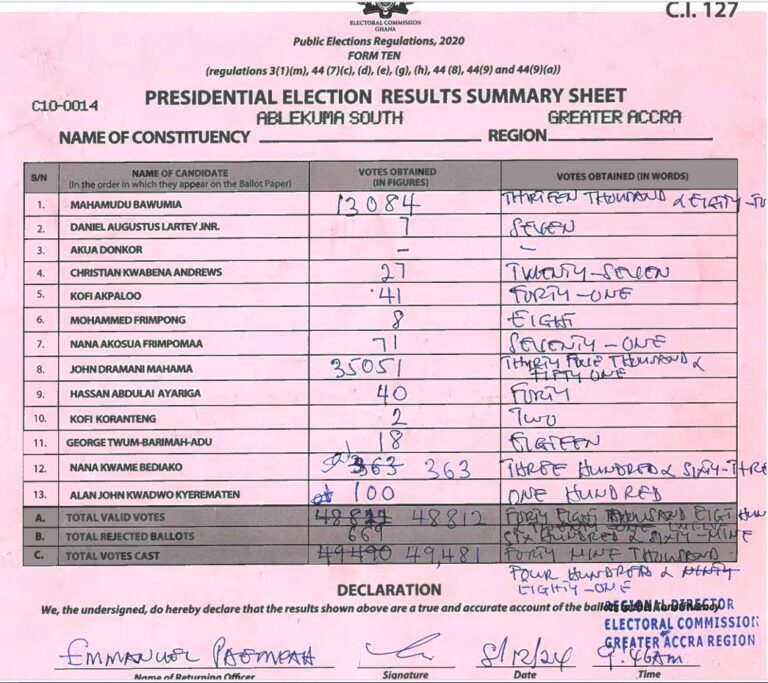 C.I. 127
ELECTORAL COMMISSION
GHANA
Public Elections Regulations, 2020
FORM TEN
(regulations 3(1)(m), 44 (7)(c), (d), (e), (g), (h), 44 (8), 44(9) and 44(9)(a))
C10-0014 PRESIDENTIAL ELECTION RESULTS SUMMARY SHEET
ABLEKUMA SOUTH GREATER ACCRA
NAME OF CONSTITUENCY REGION
S/N NAME OF CANDIDATE (In the order in which they appear on the Ballot Paper) VOTES OBTAINED (IN FIGURES) VOTES OBTAINED (IN WORDS)
1. MAHAMUDU BAWUMIA 13084 THIRTEEN THOUSAND & EIGHTY-FU
2. DANIEL AUGUSTUS LARTEY JNR. 7 SEVEN
3. AKUA DONKOR – –
4. CHRISTIAN KWABENA ANDREWS 27 TWENTY-SEVEN
5. KOFI AKPALOO 41 FORTY-ONE
6. MOHAMMED FRIMPONG 8 EIGHT
7. NANA AKOSUA FRIMPOMAA 71 SEVENTY-ONE
8. JOHN DRAMANI MAHAMA 35051 THIRTY FIVE THOUSAND & FIFTY ONE
9. HASSAN ABDULAI AYARIGA 40 FORTY
10. KOFI KORANTENG 2 TWO
11. GEORGE TWUM-BARIMAH-ADU 18 EIGTEEN
12. NANA KWAME BEDIAKO 363 363 THREE HUNDRED & SIXTY-THRE
13. ALAN JOHN KWADWO KYEREMATEN 100 ONE HUNDRED
A. TOTAL VALID VOTES 48812 FORTY EIGHT THOUSAND EIGHT HUN
B. TOTAL REJECTED BALLOTS 669 SIX HUNDRED & SIXTY-NINE
C. TOTAL VOTES CAST 49490 49,481 FORTY NINE THOUSAND
FOUR HUNDRED & NINTY
EIGHTY-ONE
DECLARATION
We, the undersigned, do hereby declare that the results shown above are a true and accurate account of the ballots Constituency
REGIONAL DIRECTOR
ELECTORAL COMMISSION
GREATER ACCRA REGION
EMMANUEL 8/12/24 9.46AM
Name of Returning Officer Signature Date Time